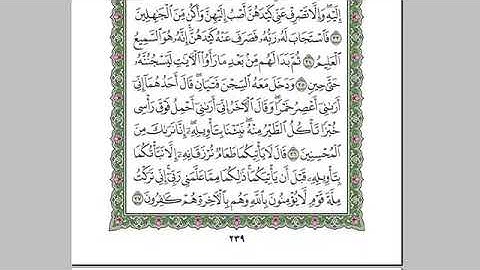 إِلَيْهِۖ وَإِلَّا تَصْرِفْ عَنِّي كَيْدَهُنَّ أَصْبُ إِلَيْهِنَّ وَأَكُن مِّنَ ٱلْجَٰهِلِينَ
٣٣ فَٱسْتَجَابَ لَهُۥ رَبُّهُۥ فَصَرَفَ عَنْهُ كَيْدَهُنَّۚ إِنَّهُۥ هُوَ ٱلسَّمِيعُ
ٱلْعَلِيمُ ٣٤ ثُمَّ بَدَا لَهُم مِّنۢ بَعْدِ مَا رَأَوُا۟ ٱلْءَايَٰتِ لَيَسْجُنُنَّهُۥ
حَتَّىٰ حِينٍ ٣٥ وَدَخَلَ مَعَهُ ٱلسِّجْنَ فَتَيَانِۖ قَالَ أَحَدُهُمَآ إِنِّيٓ
أَرَىٰنِيٓ أَعْصِرُ خَمْرًاۖ وَقَالَ ٱلْءَاخَرُ إِنِّيٓ أَرَىٰنِيٓ أَحْمِلُ فَوْقَ رَأْسِي
خُبْزًا تَأْكُلُ ٱلطَّيْرُ مِنْهُۖ نَبِّئْنَا بِتَأْوِيلِهِۦٓۖ إِنَّا نَرَىٰكَ مِنَ
ٱلْمُحْسِنِينَ ٣٦ قَالَ لَا يَأْتِيكُمَا طَعَامٌ تُرْزَقَانِهِۦٓ إِلَّا نَبَّأْتُكُمَا
بِتَأْوِيلِهِۦ قَبْلَ أَن يَأْتِيَكُمَاۚ ذَٰلِكُمَا مِمَّا عَلَّمَنِي رَبِّيٓۚ إِنِّي تَرَكْتُ
مِلَّةَ قَوْمٍ لَّا يُؤْمِنُونَ بِٱللَّهِ وَهُم بِٱلْءَاخِرَةِ هُمْ كَٰفِرُونَ ٣٧
٢٣٩